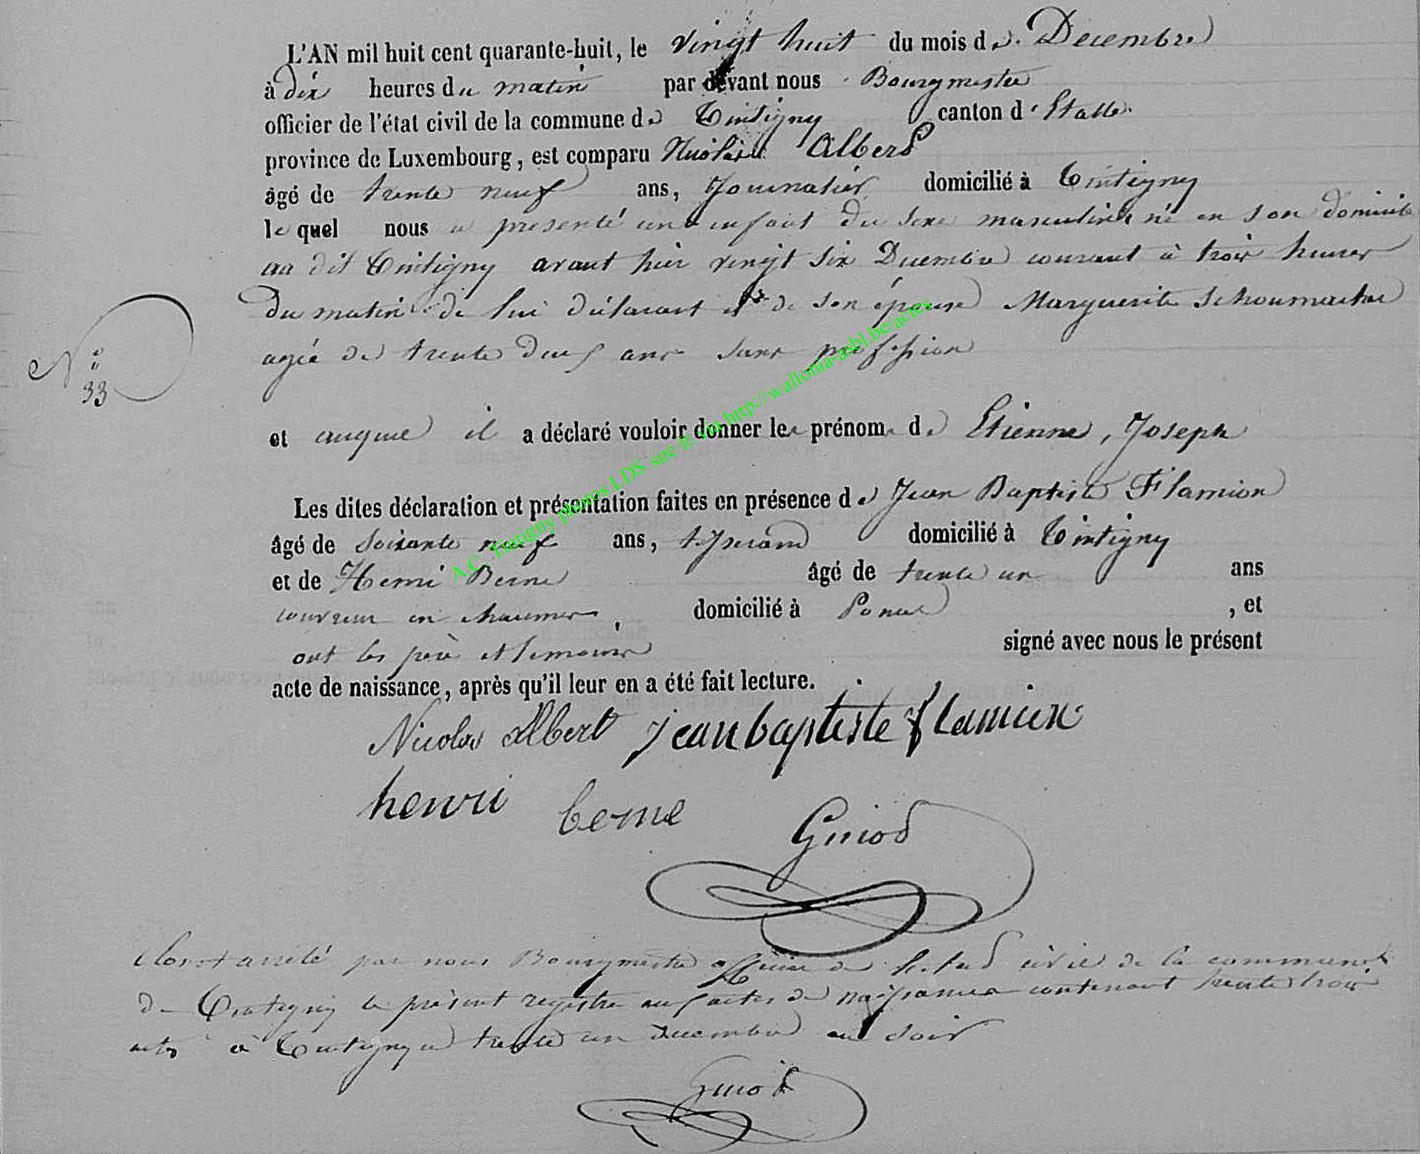 L'AN mil huit cent quarante-huit, le vingt huit du mois de Decembre
à dix heures du matin par devant nous Bourgmestre
officier de l'état civil de la commune de Tintigny canton d'Etalle
province de Luxembourg, est comparu Nicolas Albert
âgé de trente neuf ans, Journalier domicilié à Tintigny
lequel nous a presenté un enfant du sexe masculin né en son domicile
au dit Tintigny avant hier vingt six Decembre courant à trois heures
du matin de lui déclarant et de son épouse Marguerite Schoumacker
N° 33
agée de trente deux ans sans profession
et auquel il a déclaré vouloir donner les prénoms de Etienne, Joseph
Les dites déclaration et présentation faites en présence de Jean Baptiste Flamion
âgé de soixante neuf ans, tisserand domicilié à Tintigny
et de Henri Berne âgé de trente un ans
couvreur en chaumes, domicilié à , et
ont les père et témoins signé avec nous le présent
acte de naissance, après qu'il leur en a été fait lecture.
Nicolas Albert jean baptiste flamion
henri berne Guiot
Clos et arrêté par nous Bourgmestre officier de l'etat civil de la commune
de Tintigny le présent registre aux actes de naissances contenant trente trois
actes à Tintigny le trente un Decembre au soir
Guiot
A.C. Tintigny photos LDS site via http://wallonia-asbl.be/actes